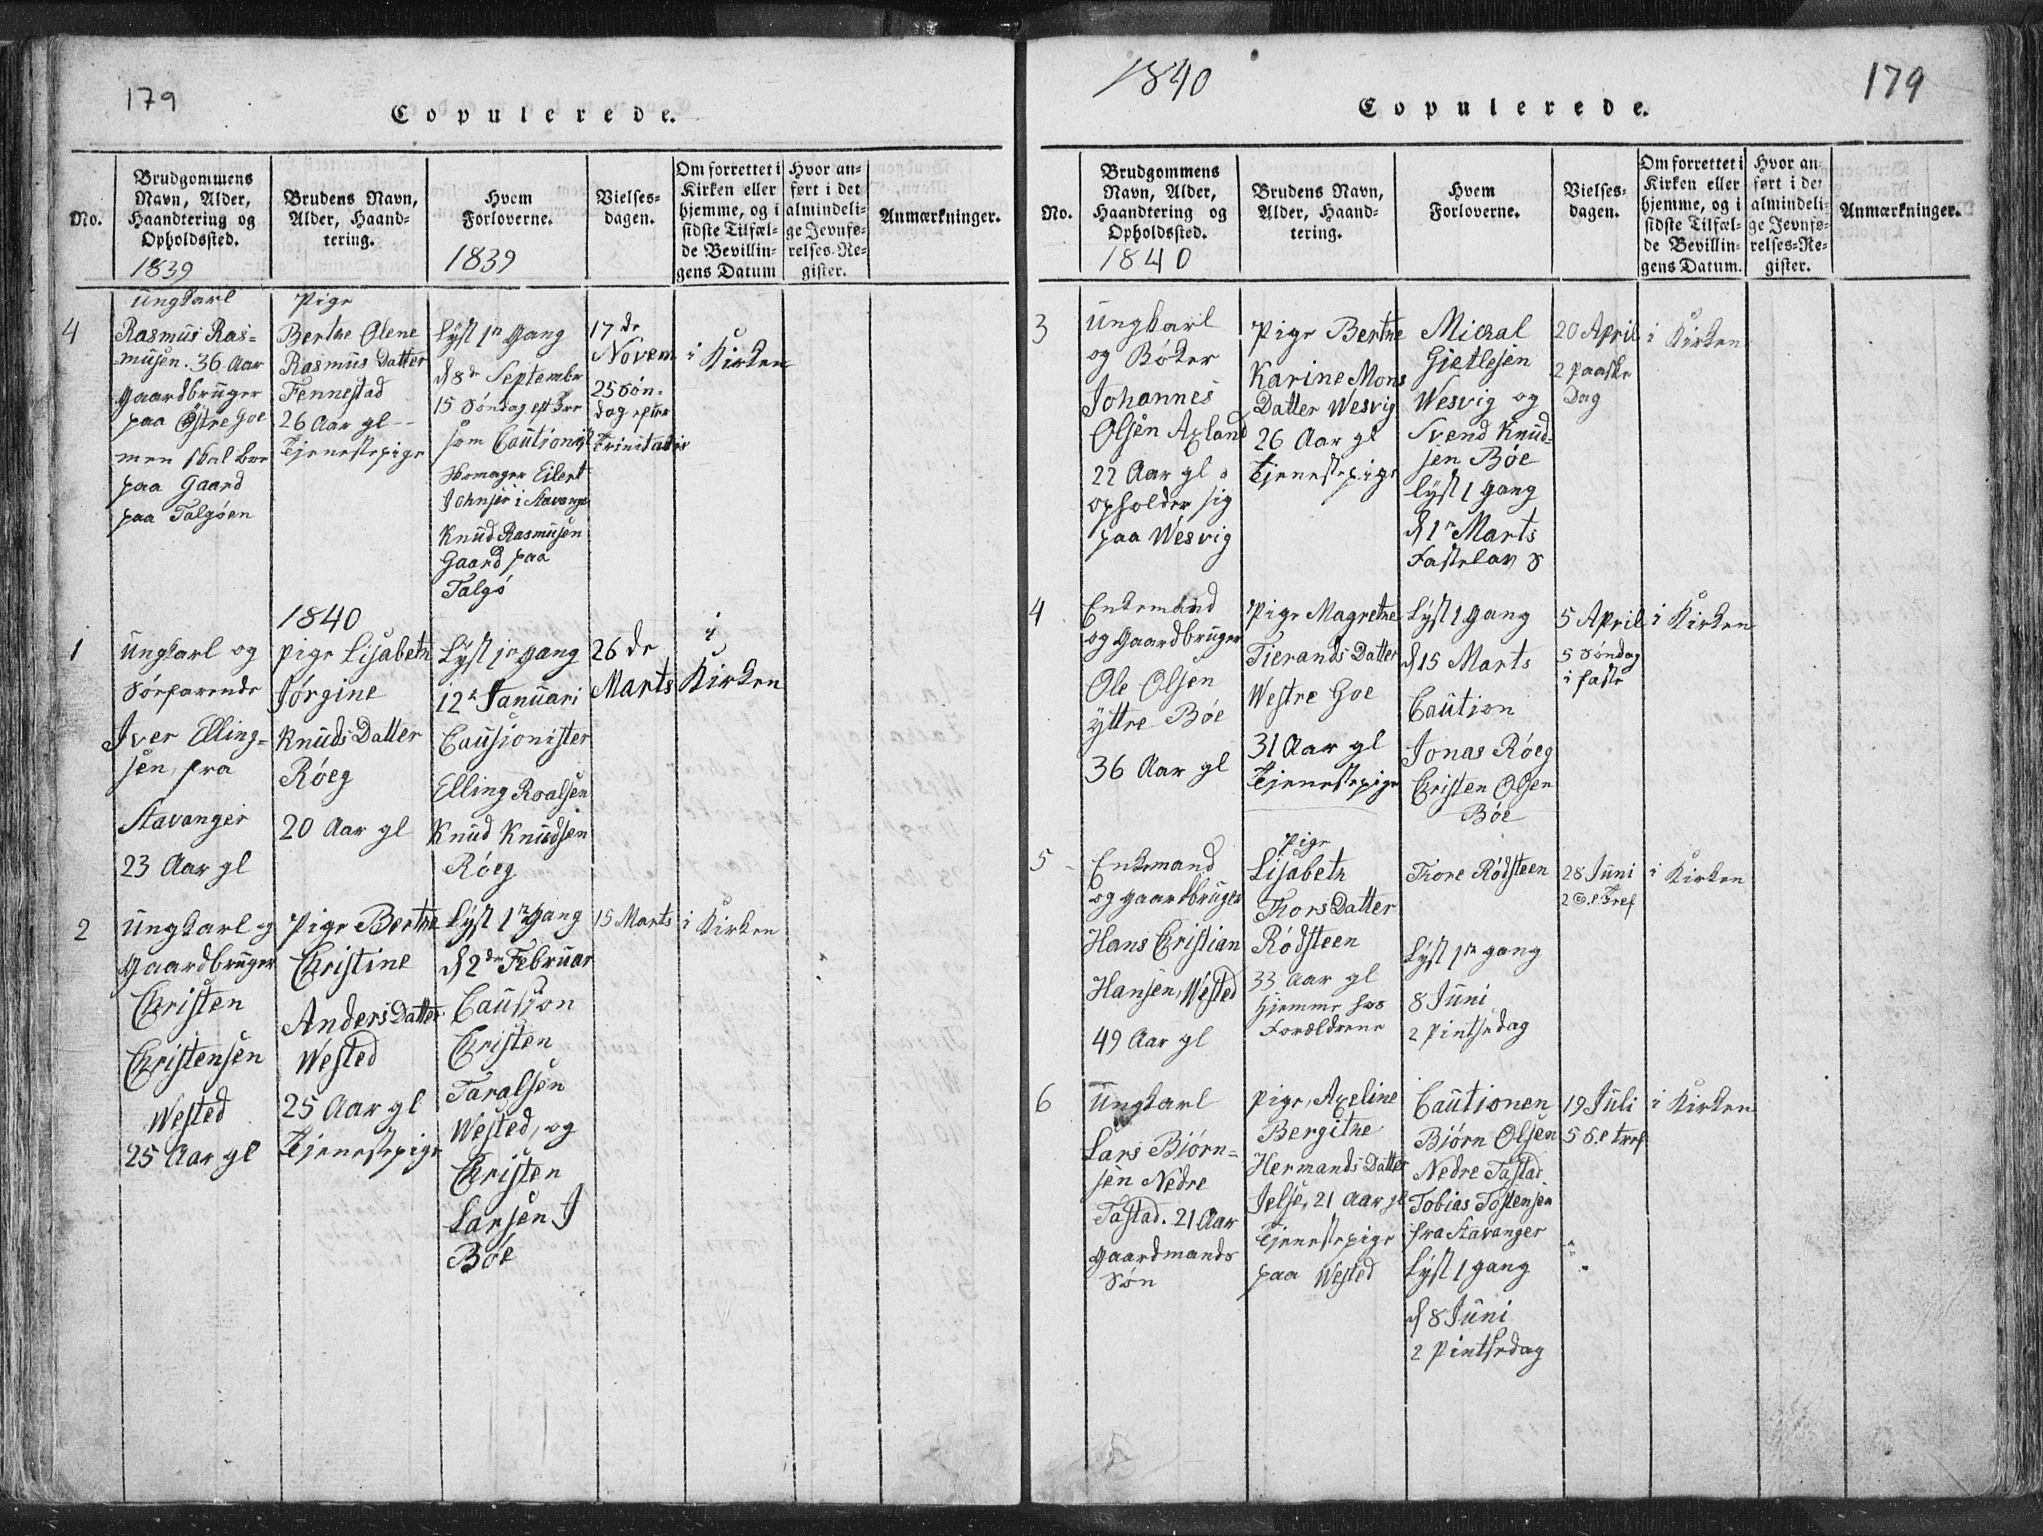 179
Copulerede.
No.
Brudgommens
Navn, Alder,
Haandtering og
Opholdssted.
1839
Brudens Navn,
Alder, Haand-
tering.
Hvem
Forloverne.
1839
Vielses-
dagen.
Om forrettet i
Kirken eller
hjemme, og i
sidste Tilfæl-
de Bevillin-
gens Datum
Hvor an-
ført i det
almindeli-
ge Jevnfø-
relses-Re-
gister.
Anmærkninger.
4
Ungkarl
Rasmus Ras-
musen. 36 Aar
Gaardbruger
paa Østre Goe
men skal boe
paa Gaard
paa Talgöen
Pige
Berthe Olene
Rasmus Datter
Fennestad
26 Aar gl
Tjenestepige
Lyst 1n Gang
d 8de Septembr
15 Söndag eft Tre
som Cautionist
Skomager Eilert
Johnsen i Stavanger
Knud Rasmusen
Gaard paa
Talgö
17 de
Novem
25 Søn-
dag efter
Trinitatis
i Kirken
1840
1
Ungkarl og
Söefarende
Iver Elling-
sen, fra
Stavanger
23 Aar gl
Pige Lisabeth
Jörgine
Knuds Datter
Röeg
20 Aar gl
Lyst 1n Gang
12te Januari
Causionister
Elling Roalsen
Knud Knudsen
Röeg
26 de
Marts
i
Kirken
2
Ungkarl og
Gaardbruger
Christen
Christensen
Wested
25 Aar gl
Pige Berthe
Christine
Anders Datter
Wested
25 Aar gl
Tjenestepige
Lyst 1n Gang
d 2den Februar
Causion
Christen
Taralsen
Wested, og
Christen
Larsen I
Böe
15 Marts
i Kirken
1840
179
Copulerede.
No.
Brudgommens
Navn, Alder,
Haandtering og
Opholdssted.
1840
Brudens Navn,
Alder, Haand-
tering.
Hvem
Forloverne.
Vielses-
dagen.
Om forrettet i
Kirken eller
hjemme, og i
sidste Tilfæl-
de Bevillin-
gens Datum.
Hvor an-
ført i det
almindeli-
ge Jevnfø-
relses-Re-
gister.
Anmærkninger.
3
Ungkarl
og Böker
Johannes
Olsen Axland
22 Aar gl
opholder sig
paa Wesvig
Pige Berthe
Karine Mons
Datter Wesvig
26 Aar gl
Tjenestepige
Mickal
Gjetlesen
Wesvig og
Svend Knud-
sen Böe
Lyst 1 Gang
d 1n Marts
Fastelav S
20 April
2 Paaske
Dag
i Kirken
4
Enkemand
og Gaardbruger
Ole Olsen
Yttre Böe
36 Aar gl
Pige Magrethe
Tierands Datter
Westre Goe
31 Aar gl
Tjenestepige
Lyst 1 Gang
d 15 Marts
Caution
Jonas Röeg
Christen Olsen
Böe
5 April
5 Söndag
i Faste
i Kirken
5
Enkemand
og Gaardbruger
Hans Christian
Hansen, Wested
49 Aar gl
Pige
Lisabeth
Thors Datter
Rödsteen
33 Aar gl
Hjemme hos
Forældrene
Thore Rödsteen
Lyst 1n gang
8 Juni
2 Pintsedag
28 Juni
2 S.e Tref
i Kirken
6
Ungkarl
Lars Biörn-
sen Nedre
Tastad. 21 Aar
Gaardmands
Sön
Pige, Axeline
Bergithe
Hermands Datter
Jelse, 21 Aar gl
Tjenestepige
paa Wested
Cautionen
Biörn Olsen
Nedre Tastad
Tobias Tostensen
fra Stavanger
Lyst 1 gang
d 8 Juni
2 Pintsedag
19 Juli
5 S.e tref
i Kirken